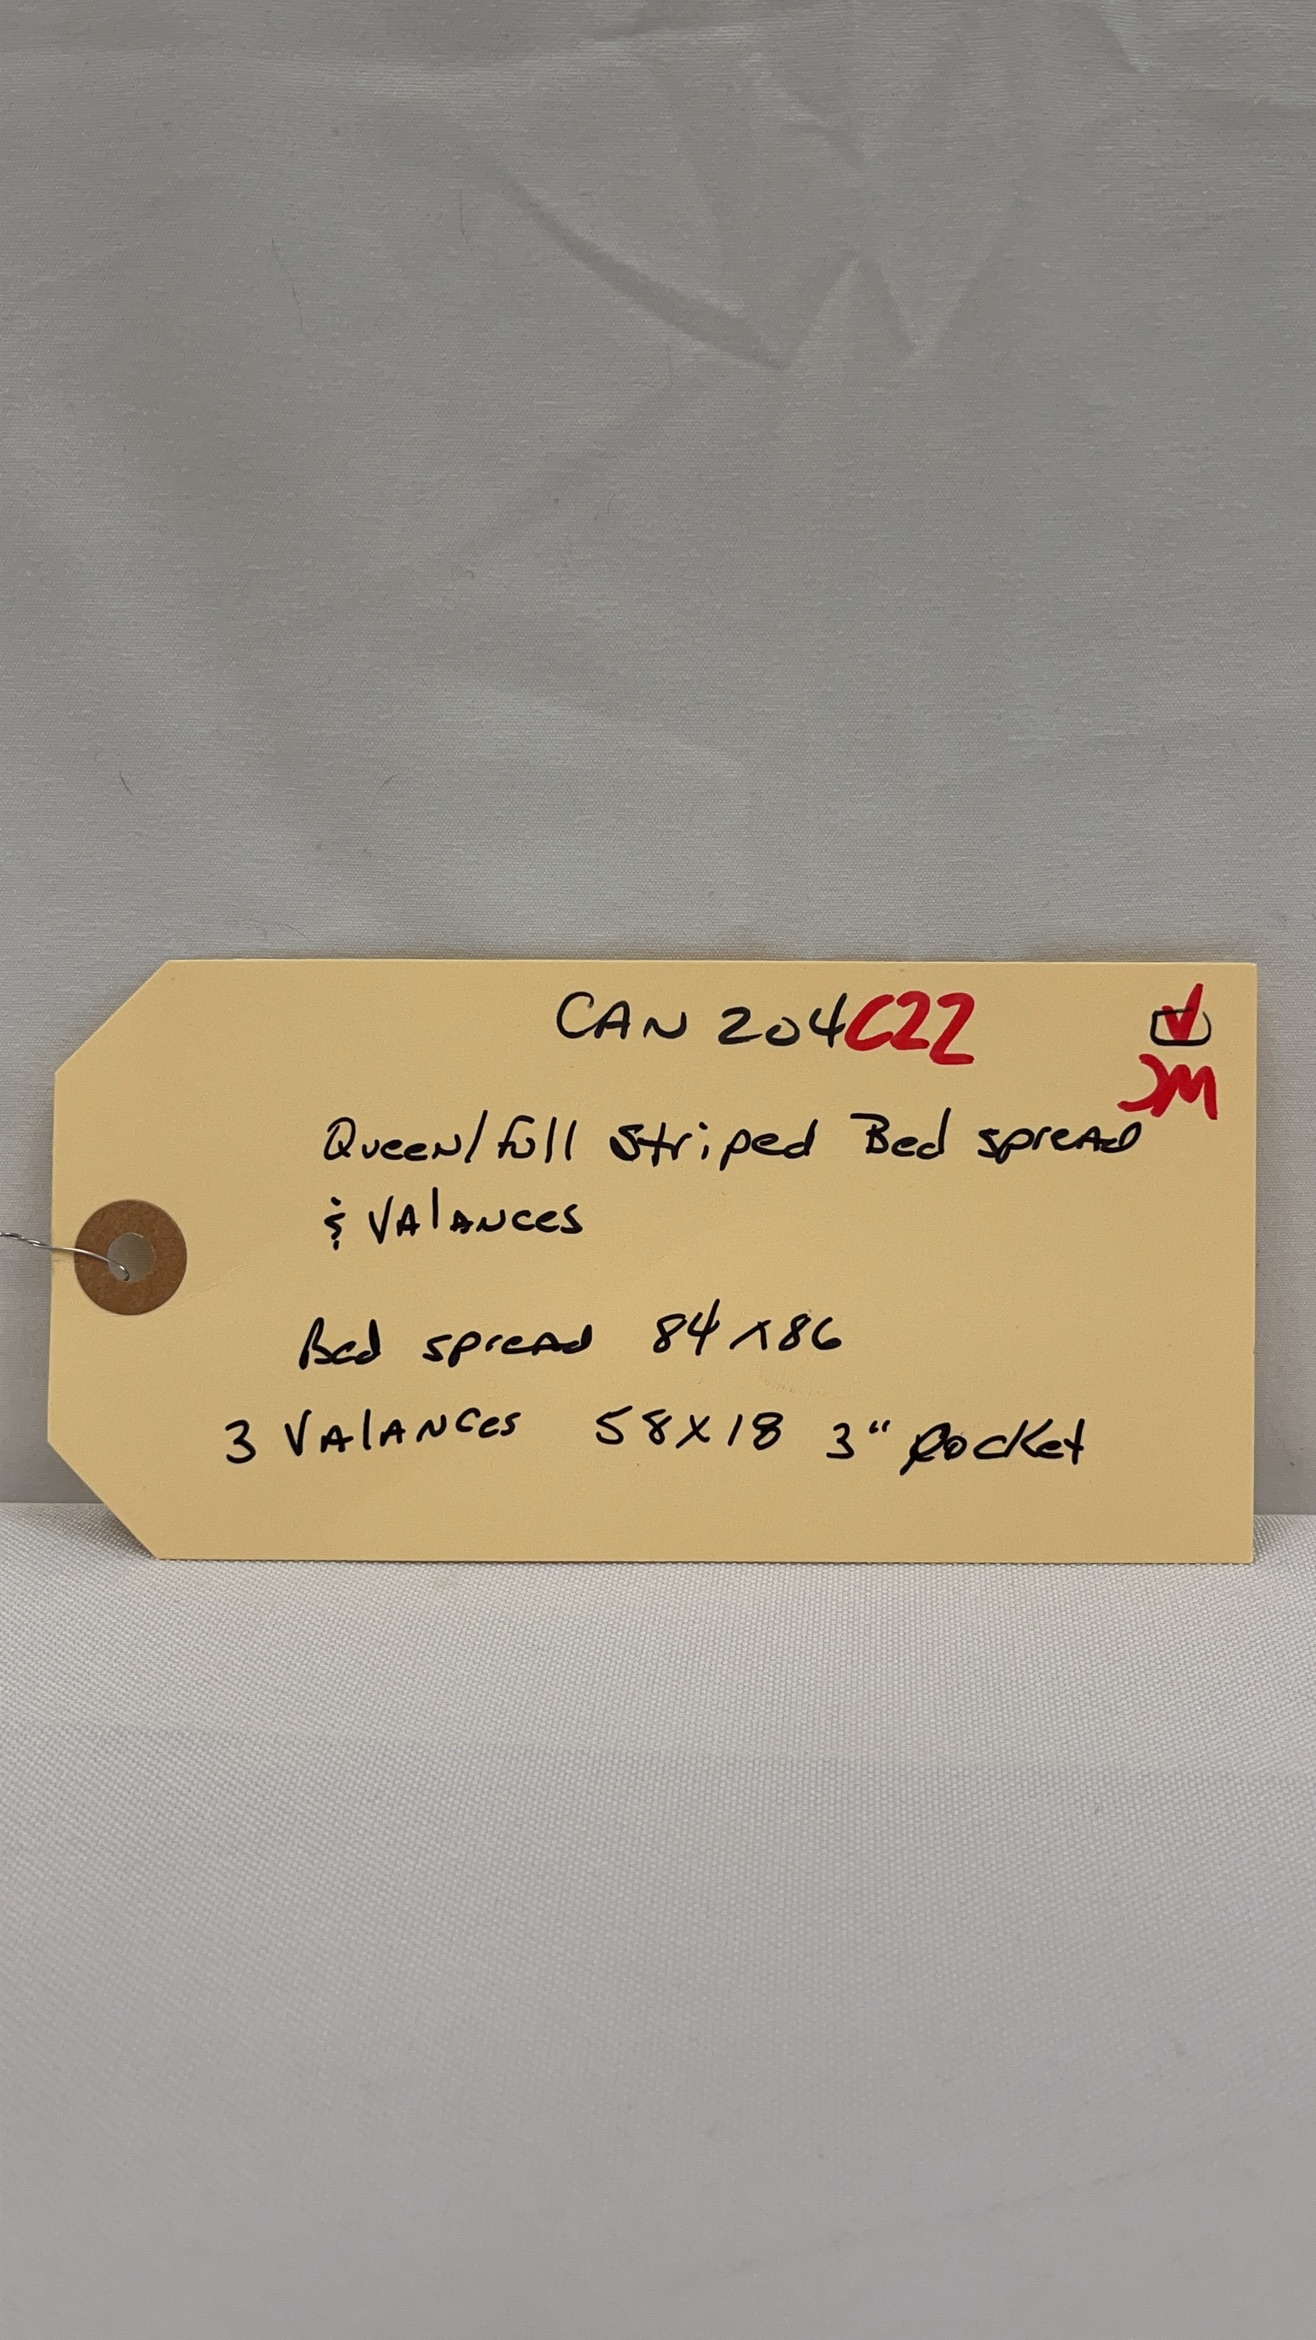 CAN 204C22
JM
Queen/full striped Bed spread
& VAlANces
Bed spread 84x86
3 VAlANces 58x18 3" Pocket